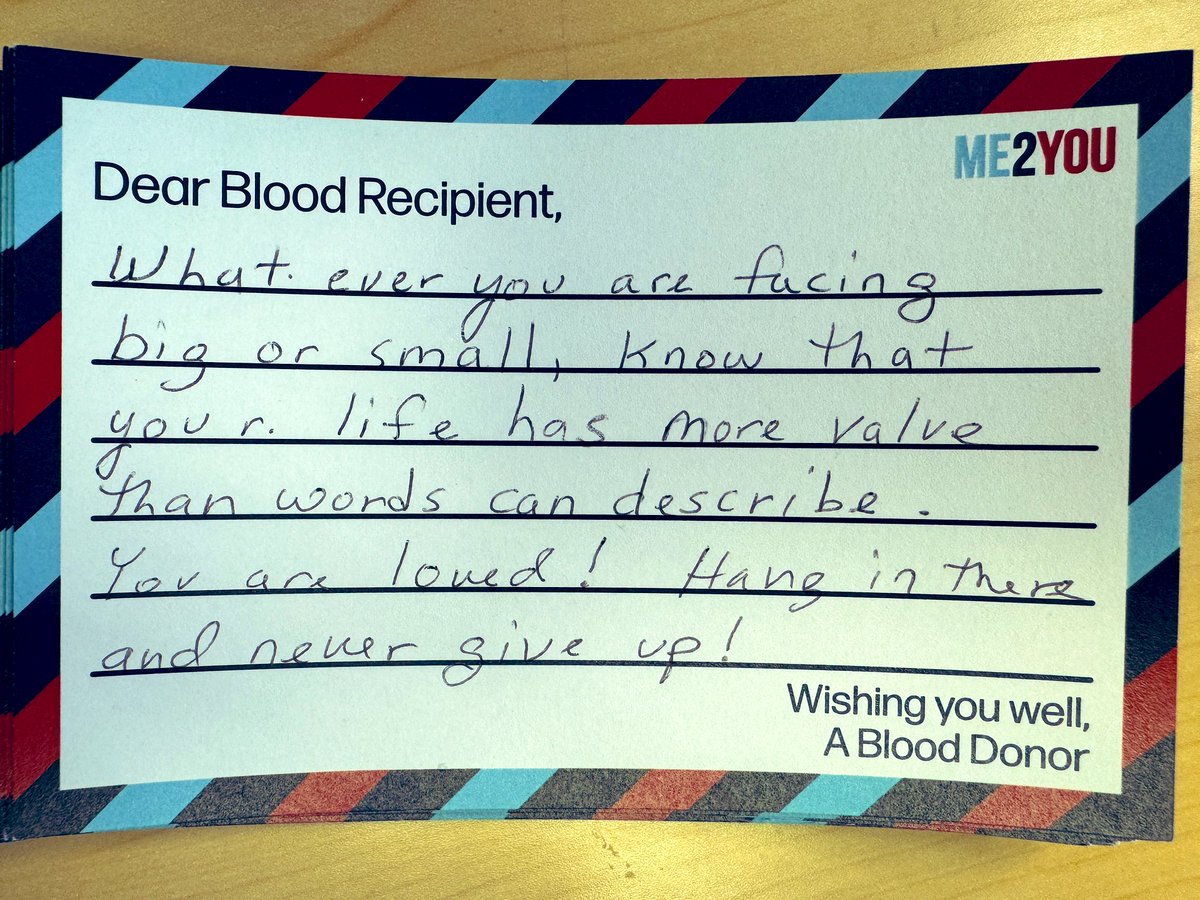 ME2YOU
Dear Blood Recipient,
What ever you are facing
big or small, know that
your. life has more value
than words can describe.
You are loved! Hang in there
and never give up!
Wishing you well,
A Blood Donor